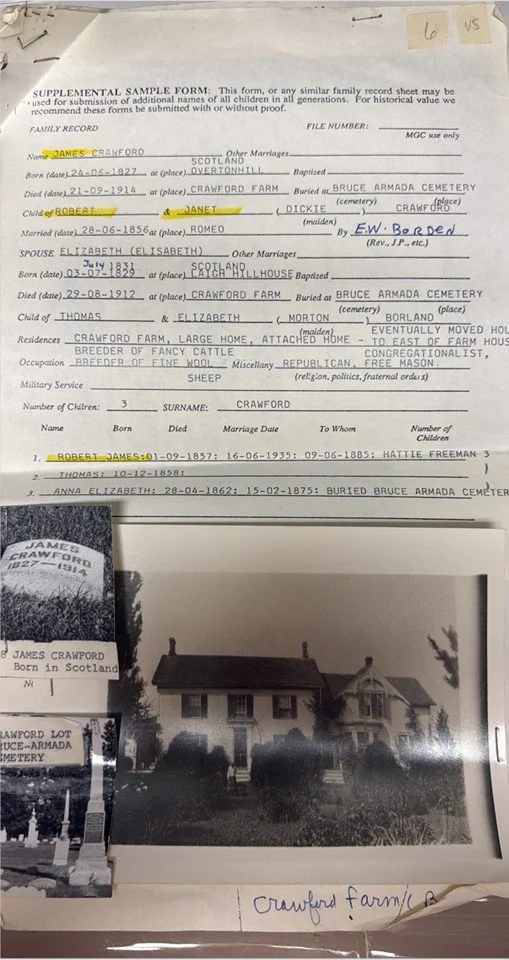 6 VS
SUPPLEMENTAL SAMPLE FORM: This form, or any similar family record sheet may be
used for submission of additional names of all children in all generations. For historical value we
recommend these forms be submitted with or without proof.
FAMILY RECORD FILE NUMBER:
MGC use only
Name JAMES CRAWFORD Other Marriages
SCOTLAND
Born (date) 24-06-1827 at (place) OVERTONHILL Baptised
Died (date) 21-09-1914 at (place) CRAWFORD FARM Buried at BRUCE ARMADA CEMETERY
(cemetery) (place)
Child of ROBERT & JANET ( DICKIE ) CRAWFORD
(maiden)
Married (date) 28-06-1856 at (place) ROMEO By E.W. BORDEN
(Rev., J.P., etc.)
SPOUSE ELIZABETH (ELISABETH) Other Marriages
July 1831 SCOTLAND
Born (date) 03-07-1829 at (place) LAIGH HILLHOUSE Baptised
Died (date) 29-08-1912 at (place) CRAWFORD FARM Buried at BRUCE ARMADA CEMETERY
(cemetery) (place)
Child of THOMAS & ELIZABETH ( MORTON ) BORLAND
(maiden) EVENTUALLY MOVED HOU
Residences CRAWFORD FARM, LARGE HOME, ATTACHED HOME - TO EAST OF FARM HOUS
BREEDER OF FANCY CATTLE CONGREGATIONALIST,
Occupation BREEDER OF FINE WOOL - Miscellany REPUBLICAN, FREE MASON.
SHEEP (religion, politics, fraternal orders)
Military Service
Number of Chilren: 3 SURNAME: CRAWFORD
Name Born Died Marriage Date To Whom Number of
Children
1. ROBERT JAMES:01-09-1857: 16-06-1935: 09-06-1885: HATTIE FREEMAN 3
2. THOMAS: 10-12-1858:
3. ANNA ELIZABETH: 28-04-1862: 15-02-1875: BURIED BRUCE ARMADA CEMETER
JAMES
CRAWFORD
1827-1914
8 JAMES CRAWFORD
Born in Scotland
RAWFORD LOT
RUCE-ARMADA
EMETERY
Crawford Farm